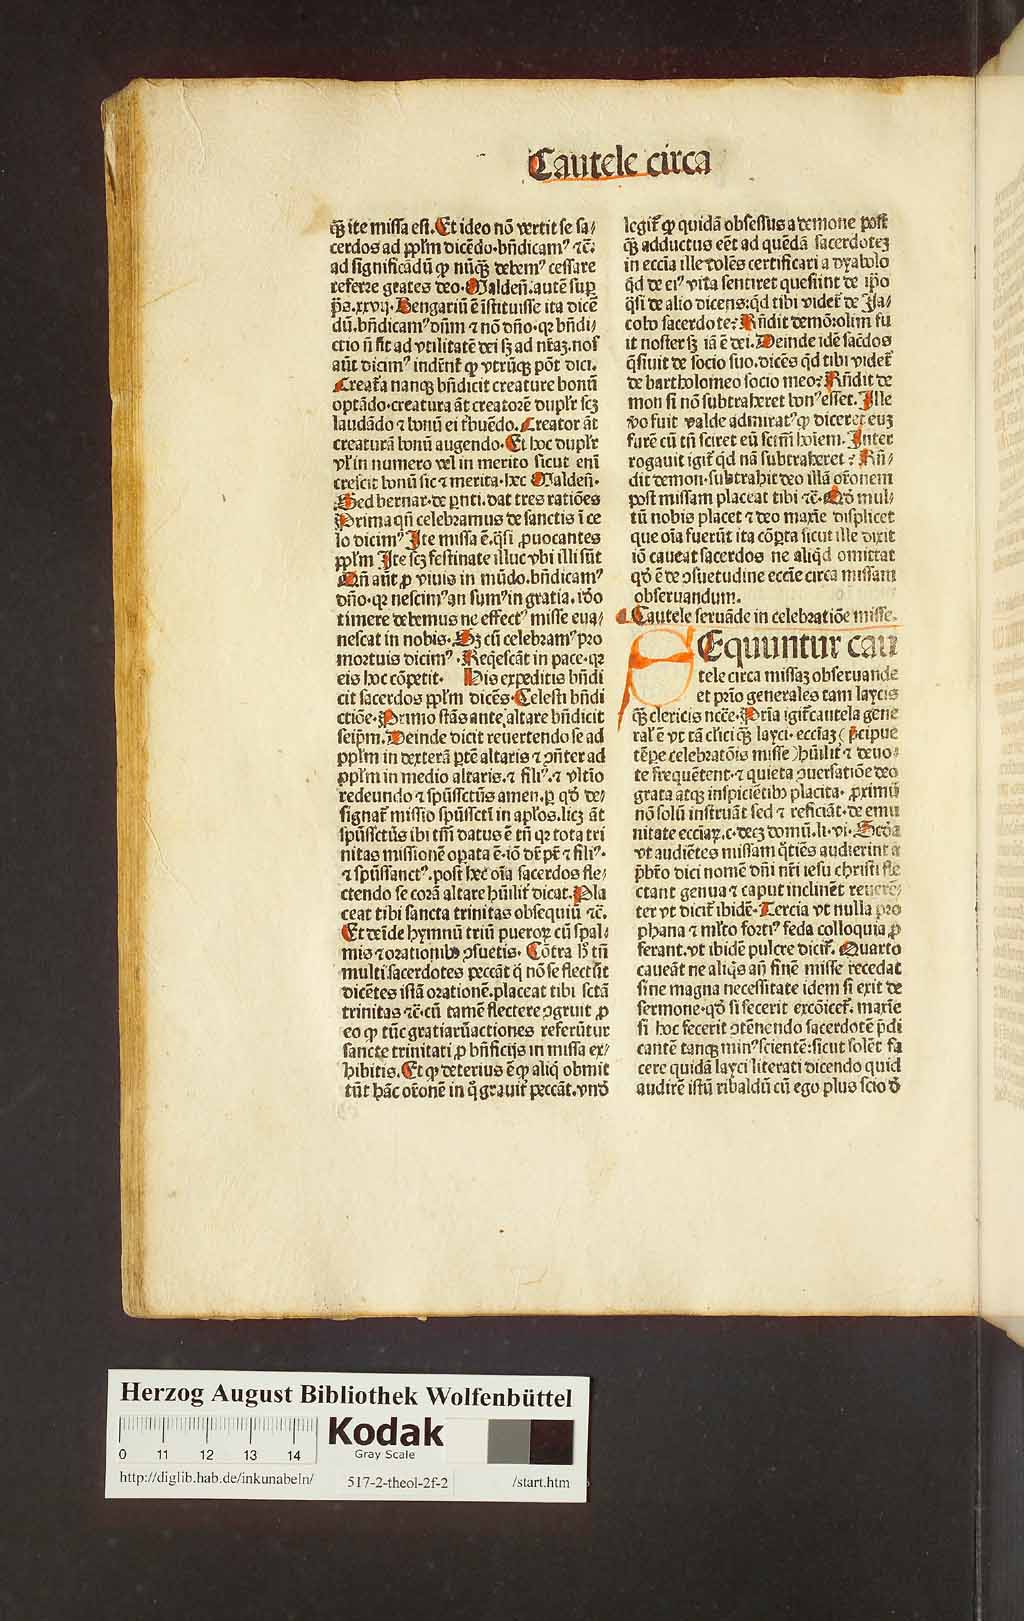 Cautele circa
qꝫ ite missa est. Et ideo nō vertit se sa⸗
cerdos ad pplm̄ dicēdo. bn̄dicamꝰ ⁊c̄.
ad significādū ꝙ nūqꝫ debemꝰ cessare
referre grates deo. Walden̄. autē suꝑ
ps̄. xxvij. Bengariū ē īstituisse ita dicē
dū. bn̄dicamꝰ dn̄m ⁊ nō dn̄o. qꝛ bn̄di⸗
ctio n̄ fit ad vtilitatē dei sꝫ ad nr̄aꝫ. nos
aūt dicimꝰ inden̄t ꝙ vtrūqꝫ pōt dici.
Creat̄a nanqꝫ bn̄dicit creature bonū
optādo. creatura āt creatorē duplr̄ scꝫ
laudādo ⁊ bonū ei tͥbuēdo. Creator āt
creaturā bonū augendo. Et hoc duplr̄
vl̄ in numero vel in merito sicut eni
crescit bonū sic ⁊ merita. hec Walden̄.
Sed bernar. de pn̄ti. dat tres ratiōes
Prima qn̄ celebramus de sanctis ī ce
lo dicimꝰ Ite missa ē. qͥsi ꝓuocantes
pplm̄ Ite scꝫ festinate illuc vbi illi sūt
Qn̄ aūt ꝓ viuis in mūdo. bn̄dicamꝰ
dn̄o. qꝛ nescimꝰ an sumꝰ in gratia. iō
timere debemus ne effectꝰ misse eua⸗
nescat in nobis. Sꝫ cū celebramꝰ pro
mortuis dicimꝰ. Reqͥescāt in pace. qꝛ
eis hoc cōpetit. His expeditis bn̄di
cit sacerdos pplm̄ dicēs. Celesti bn̄di
ctiōe. Primo stās ante altare bn̄dicit
seip̄m. Deinde dicit reuertendo se ad
pplm̄ in dexterā ꝑtē altaris ⁊ ꝯn̄ter ad
pplm̄ in medio altaris. ⁊ filiꝰ. ⁊ vltīo
redeundo ⁊ spūssctūs amen. ꝑ qd̄ de⸗
signat̄ missio spūsscti ī apl̄os. licꝫ āt
spūssctūs ibi tm̄ datus ē tn̄ qꝛ tota tri
nitas missionē opata ē. iō dr̄ pr̄ ⁊ filiꝰ.
⁊ spūssanctꝰ. post hec oīa sacerdos fle⸗
ctendo se corā altare hūilit̄ dicat. Pla
ceat tibi sancta trinitas obsequiū ⁊c̄.
Et deīde hymnū triū pueroꝝ cū spal⸗
mis ⁊ orationibꝰ ꝯsuetis. Cōtra hͦ tn̄
multi sacerdotes peccāt qͥ nō se flectūt
dicētes istā orationē. placeat tibi sctā
trinitas ⁊c̄. cū tamē flectere ꝯgruit ꝓ
eo ꝙ tūc gratiarūactiones referūtur
sancte trinitati ꝓ bn̄ficijs in missa ex⸗
hibitis. Et ꝙ deterius ē ꝙ aliqͥ obmit
tūt hāc ōronē in qͣ grauit̄ peccāt. vnd̄
legit̄ ꝙ quidā obsessus a demone post
qꝫ adductus eēt ad quēdā sacerdoteꝫ
in ecc̄ia ille volēs certificari a dyabolo
qͥd de eiꝰ vita sentiret quesiuit de ip̄o
qͥsi de alio dicens: qͥd tibi videt̄ de Ja⸗
cobo sacerdote? Rn̄dit demō: olim fu
it noster sꝫ iā ē dei. Deinde idē sac̄dos
qͥsiuit de socio suo. dicēs qͥd tibi videt̄
de bartholomeo socio meo? Rn̄dit de
mon si nō subtraheret bonꝰ esset. Ille
v̄o fuit valde admiratꝰ ꝙ diceret euꝫ
furē cū tn̄ sciret eū scim̄ hoīem. Inter
rogauit igit̄ qͥd nā subtraheret? Rn̄⸗
dit demon. subtrahit deo illā ōronem
post missam placeat tibi ⁊c̄. Qd̄ mul⸗
tū nobis placet ⁊ deo maxīe displicet
que oīa fuerūt ita cōꝑta sicut ille dixit
iō caueat sacerdos ne aliqͥd omittat
qd̄ ē de ꝯsuetudine ecc̄ie circa missam
obseruandum.
Cautele seruāde in celebratiōe misse.
Sequuntur cau
tele circa missaꝫ obseruande
et prīo generales tam laycis
qꝫ clericis ncc̄e. Prīa igit̄ cautela gene
ral̄ ē vt tā cl̄ici qꝫ layci. ecc̄iaꝫ (p̄cipue
tēpe celebratōis misse) hūilit̄ ⁊ deuo⸗
te frequētent. ⁊ quieta ꝯuersatiōe deo
grata atqꝫ inspiciētibꝫ placita. ꝓximū
nō solū instruāt sed ⁊ reficiāt. de emu
nitate ecc̄iaꝝ. c. decꝫ domū. li. vi. Scd̄a
vt audiētes missam qͦtiēs audierint a
p̄bro dici nomē dn̄i nr̄i iesu christi fle
ctant genua ⁊ caput inclinēt reuerē⸗
ter vt dicit̄ ibidē. Tercia vt nulla pro
phana ⁊ ml̄to fortiꝰ feda colloquia ꝓ
ferant. vt ibidē pulcre dicit̄. Quarto
caueāt ne aliqͥs an̄ finē misse recedat
sine magna necessitate idem si exit de
sermone. qd̄ si fecerit excōicet̄. maxīe
si hoc fecerit ꝯtēnendo sacerdotē p̄di
cantē tanqꝫ minꝰ scientē: sicut solēt fa
cere quidā layci literati dicendo quid
audirē istū ribaldū cū ego plus scio d̄
Herzog August Bibliothek Wolfenbüttel
Kodak
Gray Scale
0 11 12 13 14
http://diglib.hab.de/inkunabeln/ 517-2-theol-2f-2 /start.htm